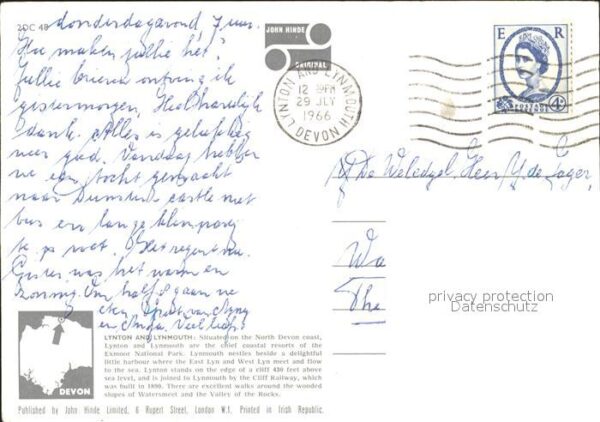 2DC 48
donderdagavond, 7 uur.
Hoe maken jullie het?
Jullie brieven ontving ik
gistermorgen. Heel hartelijk
dank. Alles is gelukkig
weer goed. Vandaag hebben
we een tocht gemaakt
naar Dunster castle met
bus en lange klimpartij
te wat. Het regent nu.
Gister was het warm en
zonnig. Om half 8 gaan we
eten. Veel liefs
JOHN HINDE
ORIGINAL
LYNTON AND LYNMOUTH
12 PM
29 JLY
1966
DEVON
E R
POSTAGE
4D
De Weledgel. Heer Y. de Jager
Wa
The
privacy protection
Datenschutz
DEVON
LYNTON AND LYNMOUTH: Situated on the North Devon coast,
Lynton and Lynmouth are the chief coastal resorts of the
Exmoor National Park. Lynmouth nestles beside a delightful
little harbour where the East Lyn and West Lyn meet and flow
to the sea. Lynton stands on the edge of a cliff 430 feet above
sea level, and is joined to Lynmouth by the Cliff Railway, which
was built in 1890. There are excellent walks around the wooded
slopes of Watersmeet and the Valley of the Rocks.
Published by John Hinde Limited, 6 Rupert Street, London W.1. Printed in Irish Republic.